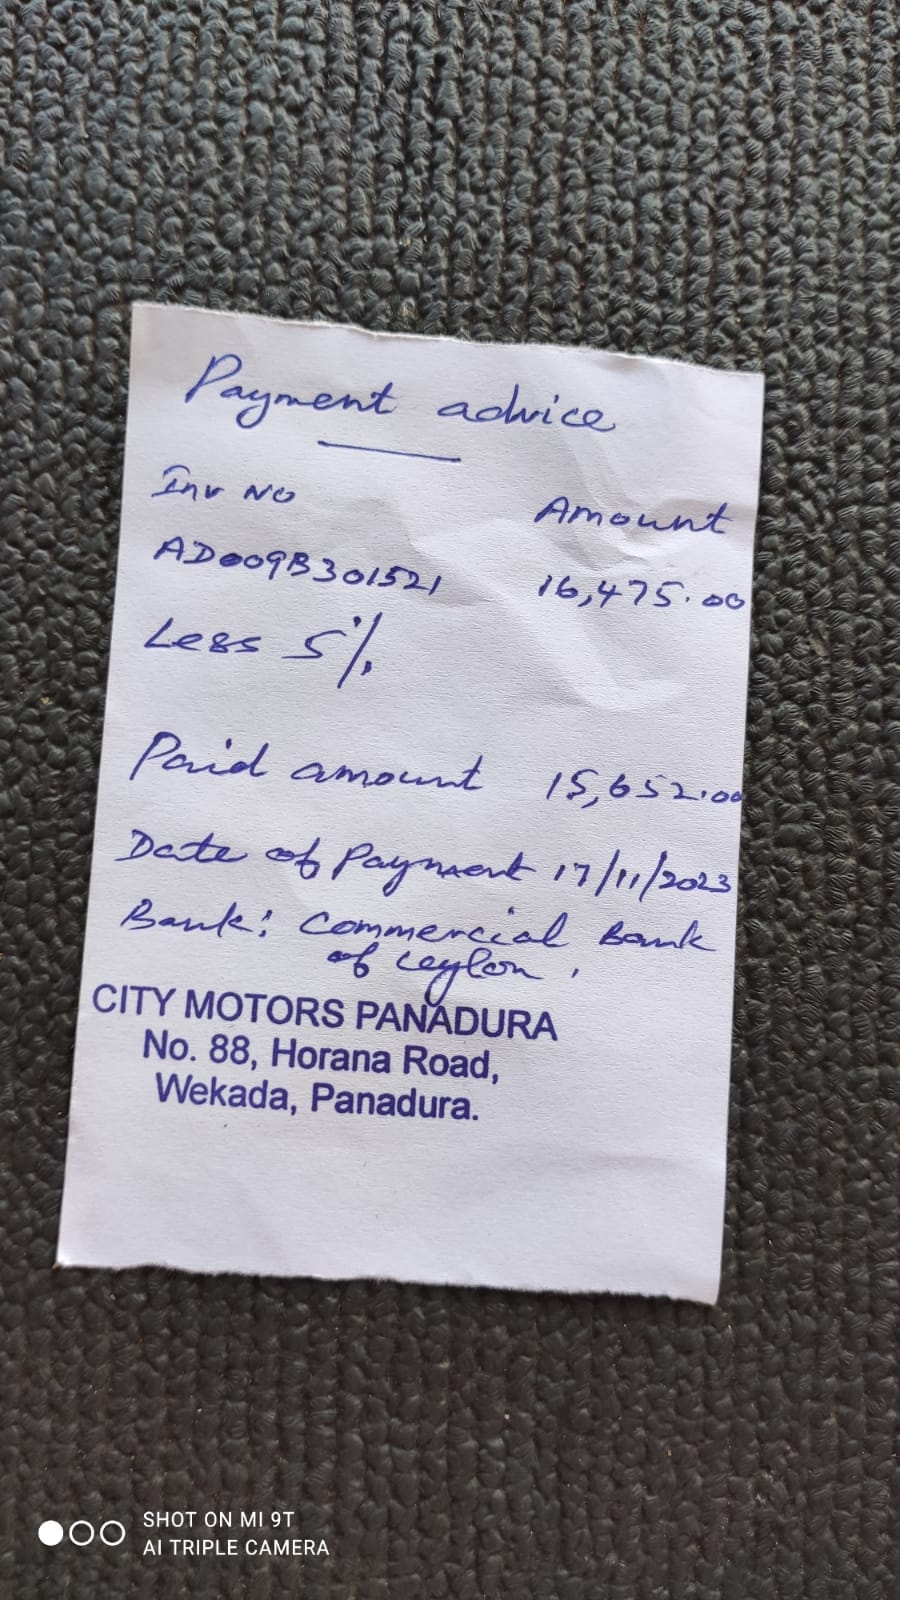 Payment advice
Inv No Amount
AD009B301521 16,475.00
Less 5%
Paid amount 15,652.00
Date of Payment 17/11/2023
Bank: Commercial Bank
of Ceylon.
CITY MOTORS PANADURA
No. 88, Horana Road,
Wekada, Panadura.
SHOT ON MI 9T
AI TRIPLE CAMERA